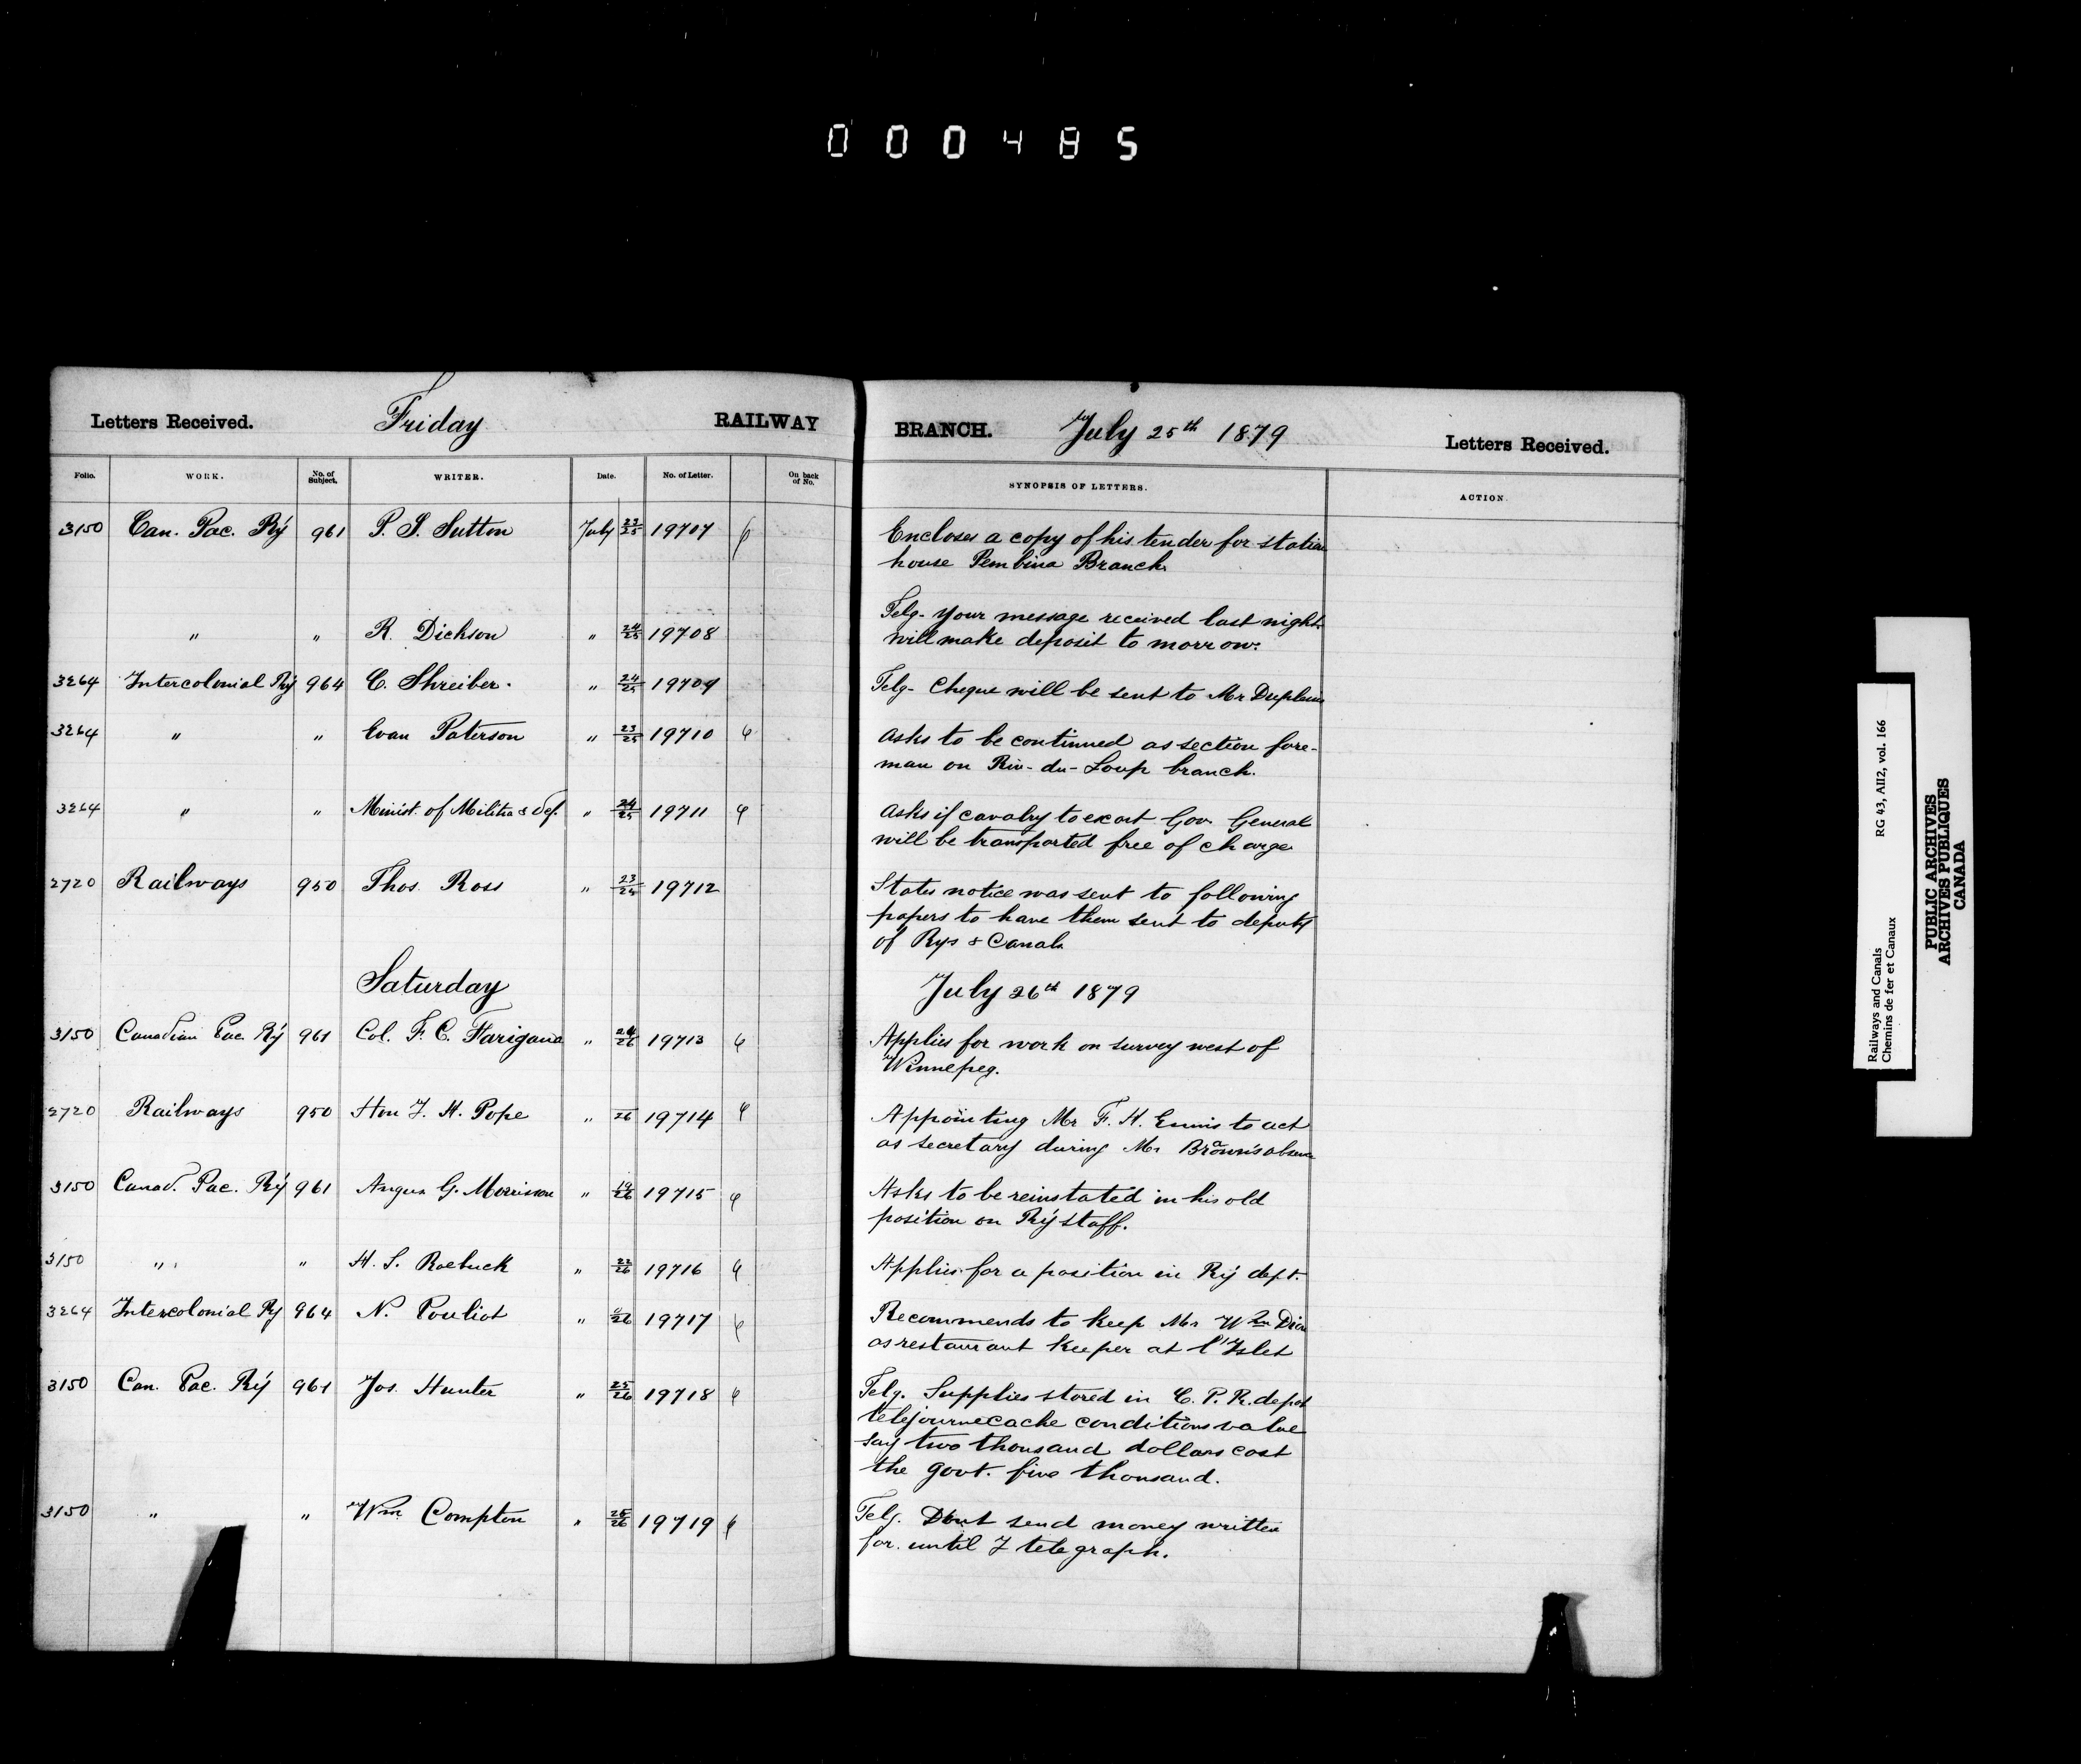 0 0 0 4 8 5
Letters Received. Friday RAILWAY BRANCH. July 25th 1879 Letters Received.
Folio. WORK. No. of Subject. WRITER. Date. No. of Letter. On back of No. SYNOPSIS OF LETTERS. ACTION.
3150 Can. Pac. Ry 961 P. S. Sutton July 23/25 19707 Encloses a copy of his tender for station
house Pembina Branch.
" " R. Dickson " 24/25 19708 Telg- Your message received last night
will make deposit to morrow.
3264 Intercolonial Ry 964 C. Shreiber. " 24/25 19709 Telg- Cheque will be sent to Mr
3264 " " Evan Paterson " 23/25 19710 Asks to be continued as section fore-
man on Riv-du-Loup branch.
3264 " " Minist. of Militia & Def. " 24/25 19711 Asks if cavalry to escort Gov. General
will be transported free of charge
2720 Railways 950 Thos. Ross " 23/25 19712 States notice was sent to following
papers to have them sent to deputy
of Rys & Canals
Saturday July 26th 1879
3150 Canadian Pac. Ry 961 Col. F. C. " 24/26 19713 Applies for work on survey west of
Winnepeg.
2720 Railways 950 Hon J. H. Pope " 26 19714 Appointing Mr F. H. Ennis to act
as secretary during Mr Braun's absence
3150 Canad. Pac. Ry 961 Angus G. Morrison " 19/26 19715 Asks to be reinstated in his old
position on Ry staff.
3150 " " H. S. Roebuck " 22/26 19716 Applies for a position in Ry dept.
3264 Intercolonial Ry 964 N. Pouliot " 26 19717 Recommends to keep Mr Wm Dion
as restaurant keeper at l'Islet
3150 Can. Pac. Ry 961 Jos. Hunter " 25/26 19718 Telg. Supplies stored in C. P. R. depot
conditions value
say two thousand dollars cost
the govt. five thousand.
3150 " " Wm Compton " 25/26 19719 Telg. Dont send money written
for until I telegraph.
Railways and Canals RG 43, AII2, vol. 166
Chemins de fer et Canaux
PUBLIC ARCHIVES
ARCHIVES PUBLIQUES
CANADA